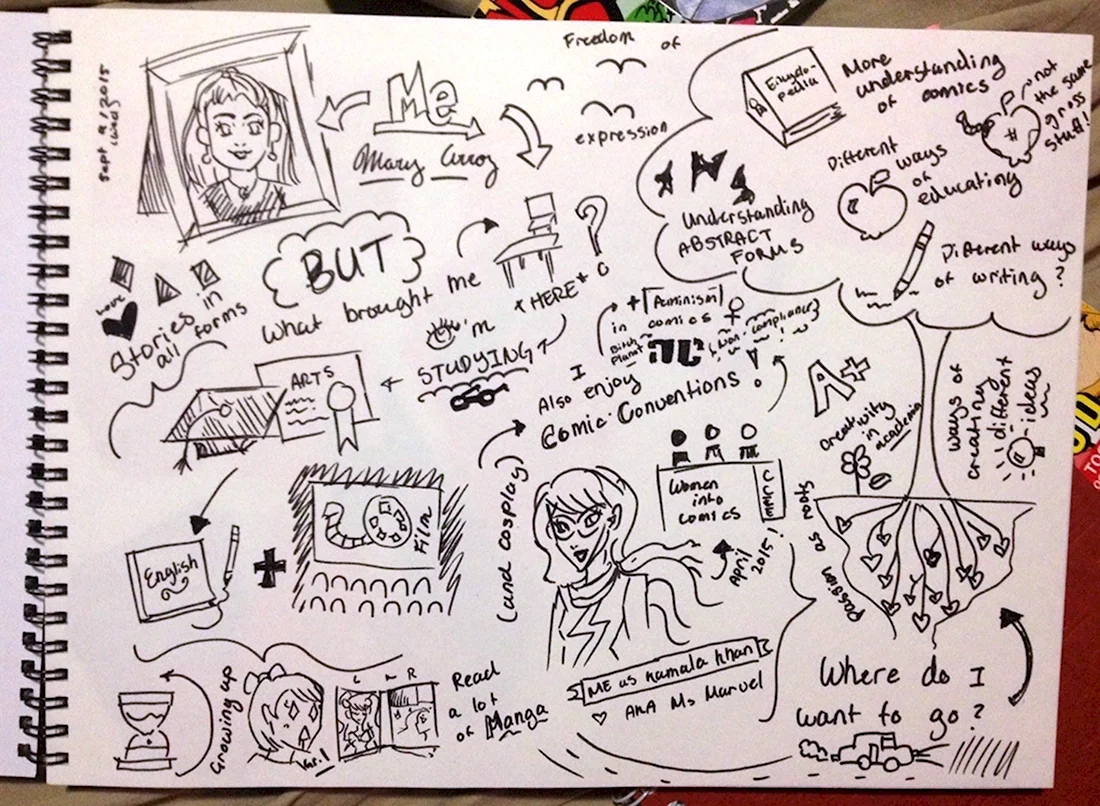 Sept 9, 2015
Me
Mary Arroz
Freedom of
expression
BUT
what brought me
*HERE*
?
love
Stories in
all forms
I'm
STUDYING
ARTS
English
+
Film
Growing up
Vol. 1
L R
Read
a lot
of Manga
I
Also enjoy
Comic Conventions!
(and cosplay)
+ Feminism
in comics
Bitch
Planet
NC
(non-compliance)
Women
into
comics
April
2015!
ME as Kamala Khan
♡ AKA Ms Marvel
Where do I
want to go?
passion as roots
A+
creativity
in
academia
ways of
creating
different
ideas
Encyclo-
pedia
More
understanding
of comics
not
the same
gross
stuff!
Different
ways
of
educating
Understanding
ABSTRACT
FORMS
Different ways
of writing?